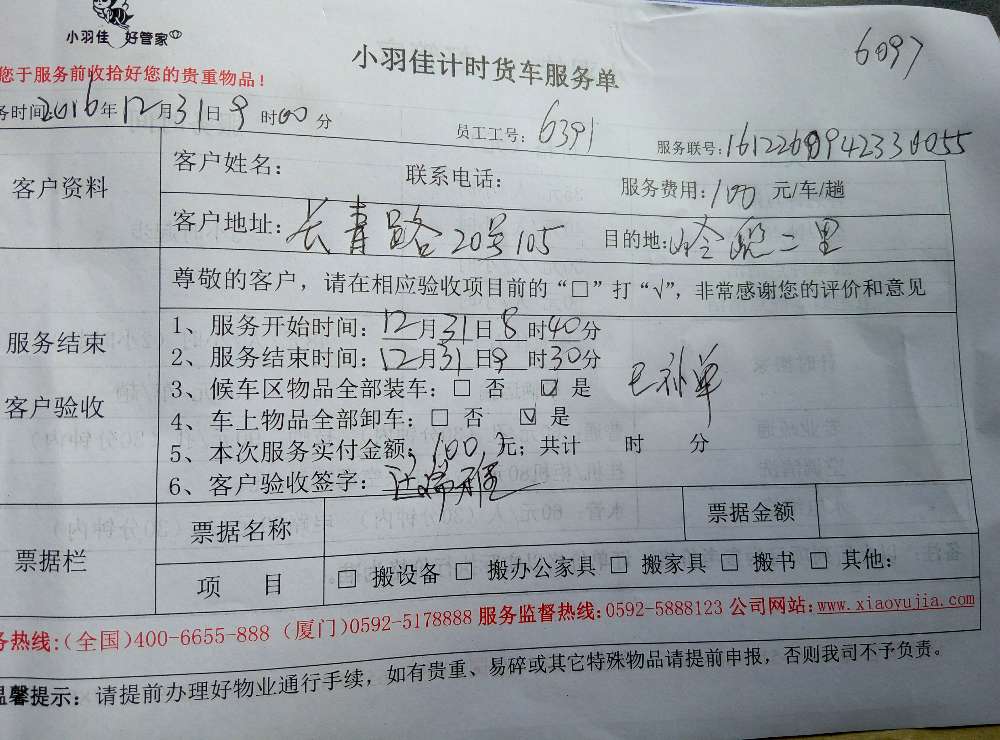 小羽佳 好管家
6097
小羽佳计时货车服务单
您于服务前收拾好您的贵重物品！
务时间:2016年12月31日9时00分
员工工号：6391
服务联号:
客户资料
客户姓名： 联系电话： 服务费用：100 元/车/趟
客户地址：长青路20号105 目的地:
服务结束
客户验收
尊敬的客户，请在相应验收项目前的“□”打“√”，非常感谢您的评价和意见
1、服务开始时间：12月31日8时40分
2、服务结束时间：12月31日9时30分
3、候车区物品全部装车：□ 否 ☑ 是
已补单
4、车上物品全部卸车：□ 否 ☑ 是
5、本次服务实付金额：100元；共计 时 分
6、客户验收签字：
票据栏
票据名称 票据金额
项 目 □ 搬设备 □ 搬办公家具 □ 搬家具 □ 搬书 □ 其他：
务热线:(全国)400-6655-888 (厦门)0592-5178888 服务监督热线:0592-5888123 公司网站:www.xiaoyujia.com
温馨提示：请提前办理好物业通行手续，如有贵重、易碎或其它特殊物品请提前申报，否则我司不予负责。